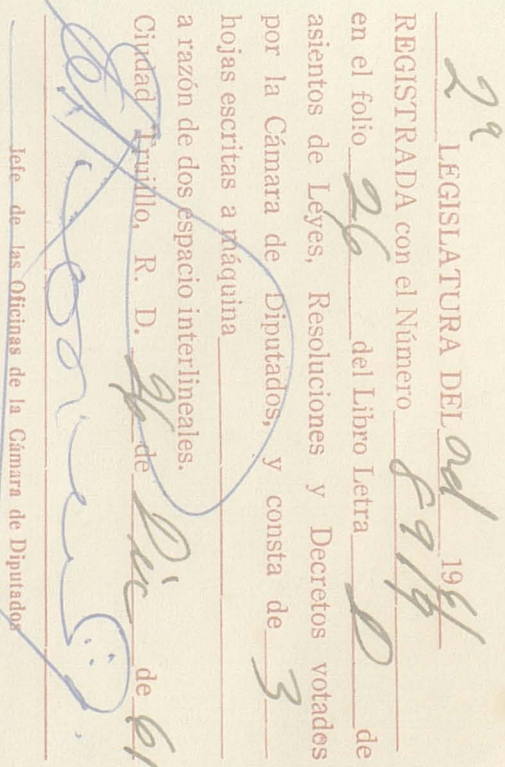 2ª LEGISLATURA DEL Od 1961
REGISTRADA con el Número 8916
en el folio 26 del Libro Letra D de
asientos de Leyes, Resoluciones y Decretos votados
por la Cámara de Diputados, y consta de 3
hojas escritas a máquina
a razón de dos espacio interlineales.
Ciudad Trujillo, R. D. 26 de Dic de 61
Jefe de las Oficinas de la Cámara de Diputados